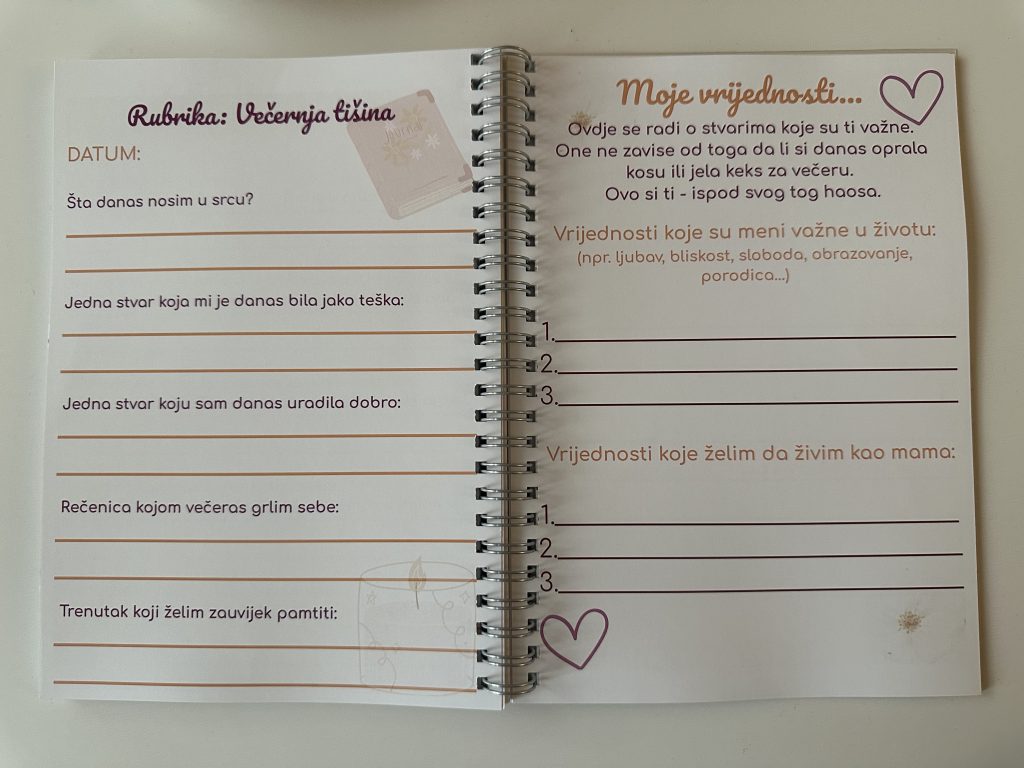 Rubrika: Večernja tišina
DATUM:
Šta danas nosim u srcu?
Jedna stvar koja mi je danas bila jako teška:
Jedna stvar koju sam danas uradila dobro:
Rečenica kojom večeras grlim sebe:
Trenutak koji želim zauvijek pamtiti:
Moje vrijednosti...
Ovdje se radi o stvarima koje su ti važne.
One ne zavise od toga da li si danas oprala
kosu ili jela keks za večeru.
Ovo si ti - ispod svog tog haosa.
Vrijednosti koje su meni važne u životu:
(npr. ljubav, bliskost, sloboda, obrazovanje,
porodica...)
1.
2.
3.
Vrijednosti koje želim da živim kao mama:
1.
2.
3.